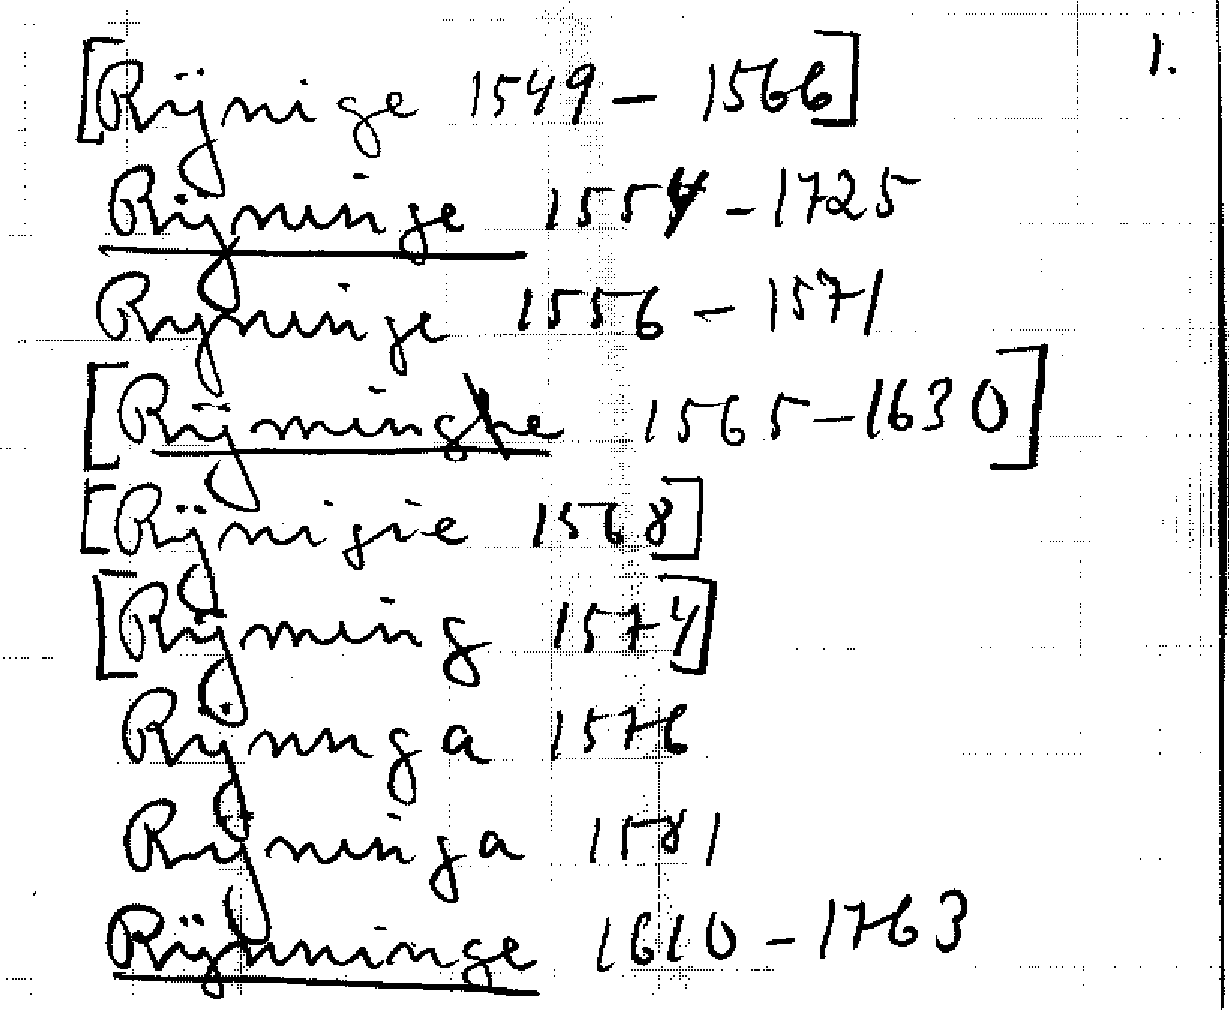 1.
[Rijnige 1549 – 1566]
Rijninge 1554 – 1725
Ryninge 1556 – 1571
[Rijminghe 1565 – 1630]
[Rijnigie 1568]
[Rijming 1574]
Rijnnga 1576
Rijninga 1581
Rijnninge 1610 – 1763